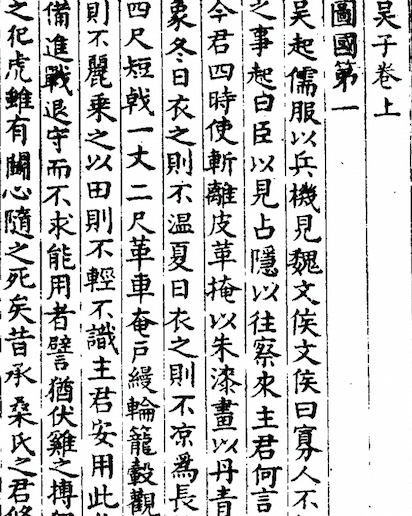 吳子卷上
圖國第一
吳起儒服以兵機見魏文侯文侯曰寡人不
之事起曰臣以見占隱以往察來主君何言
今君四時使斬離皮革掩以朱漆畫以丹青
象冬日衣之則不温夏日衣之則不凉爲長
四尺短戟一丈二尺革車奄戶縵輪籠轂觀
則不麗乗之以田則不輕不識主君安用此
備進戰退守而不求能用者譬猶伏雞之搏
之犯虎雖有鬬心隨之死矣昔承桑氏之君修